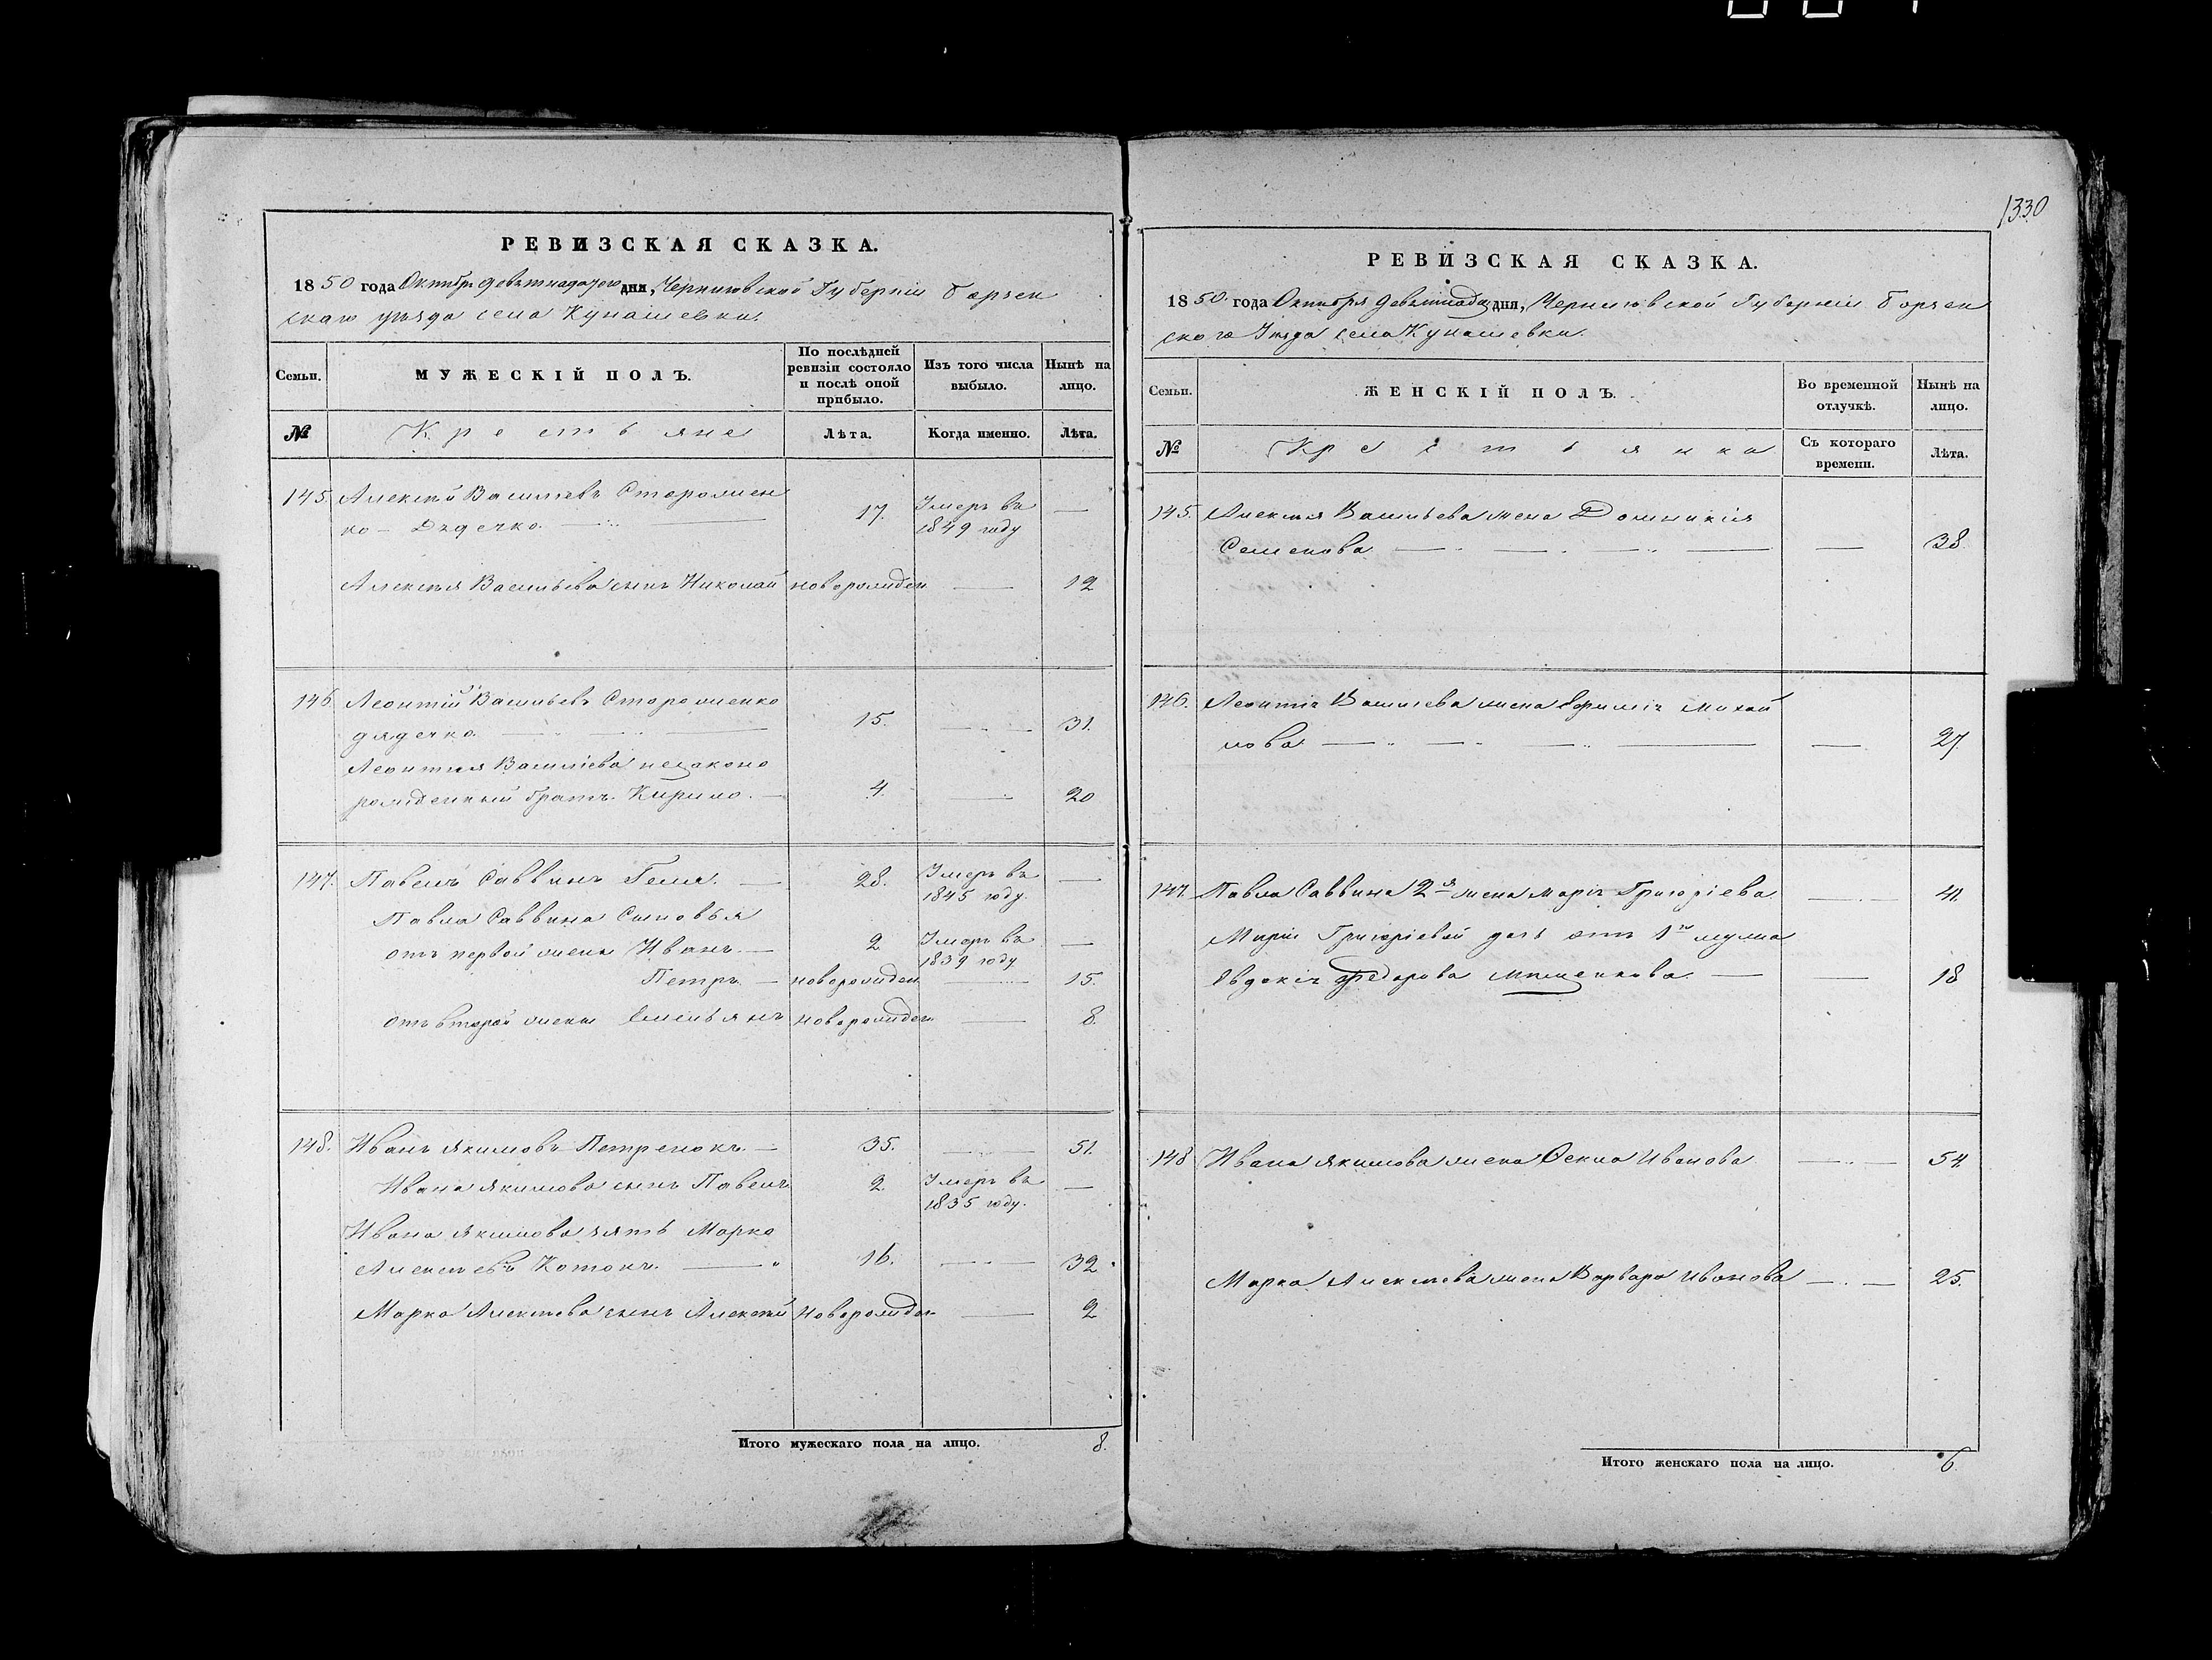 1330
РЕВИЗСКАЯ СКАЗКА.
1850 года Октября девятнадцатого дня, Черниговской Губерніи Борзен
скаго уѣзда села Кунашевки.
Семьи.
МУЖЕСКІЙ ПОЛЪ.
По послѣдней
ревизіи состояло
и послѣ оной
прибыло.
Изъ того числа
выбыло.
Нынѣ на
лицо.
№
Крестьяне
Лѣта.
Когда именно.
Лѣта.
145. Алексѣй Васильевъ Сторожен
ко – Дядечко. 17. Умеръ въ 1849 году —
Алексѣя Васильева сынъ Николай новорожден — 12
146 Леонтій Васильевъ Стороженко
дядечко. 15. — 31.
Леонтія Васильева незаконо
рожденный братъ Кирило. — 4. — 20
147. Павелъ Саввинъ Геля. — 28. Умеръ въ 1845 году. —
Павла Саввина Сыновья
отъ первой жены Иванъ — 2 Умеръ въ 1839 году —
Петръ — новорожден — 15.
отъ второй жены Емельянъ новорожден. — 8.
148. Иванъ Якимовъ Петренокъ. — 35. — 51.
Ивана Якимова сынъ Павелъ 2. Умеръ въ 1835 году. —
Ивана Якимова зять Марко
Алексѣевъ Котокъ. — 16. — 32
Марка Алексѣева сынъ Алексѣй новорожден — 2
Итого мужескаго пола на лицо. 8.
РЕВИЗСКАЯ СКАЗКА.
1850 года Октября девятнадц дня, Черниговской Губерніи Борзен
скаго Уѣзда села Кунашевки.
Семьи.
ЖЕНСКІЙ ПОЛЪ.
Во временной
отлучкѣ.
Нынѣ на
лицо.
№
Крестьянки
Съ котораго
времени.
Лѣта.
145. Алексѣя Васильева жена Домникія
Семенова — — 38.
146. Леонтія Васильева жена Ефимія Михай
лова — — 27
147. Павла Саввина 2я жена Марія Григоріева — 41.
Маріи Григоріевой дочь отъ 1го мужа
Евдокія Федорова — — 18
148 Ивана Якимова жена Фекла Иванова — 54.
Марка Алексѣева жена Варвара Иванова — 25.
Итого женскаго пола на лицо. 6.